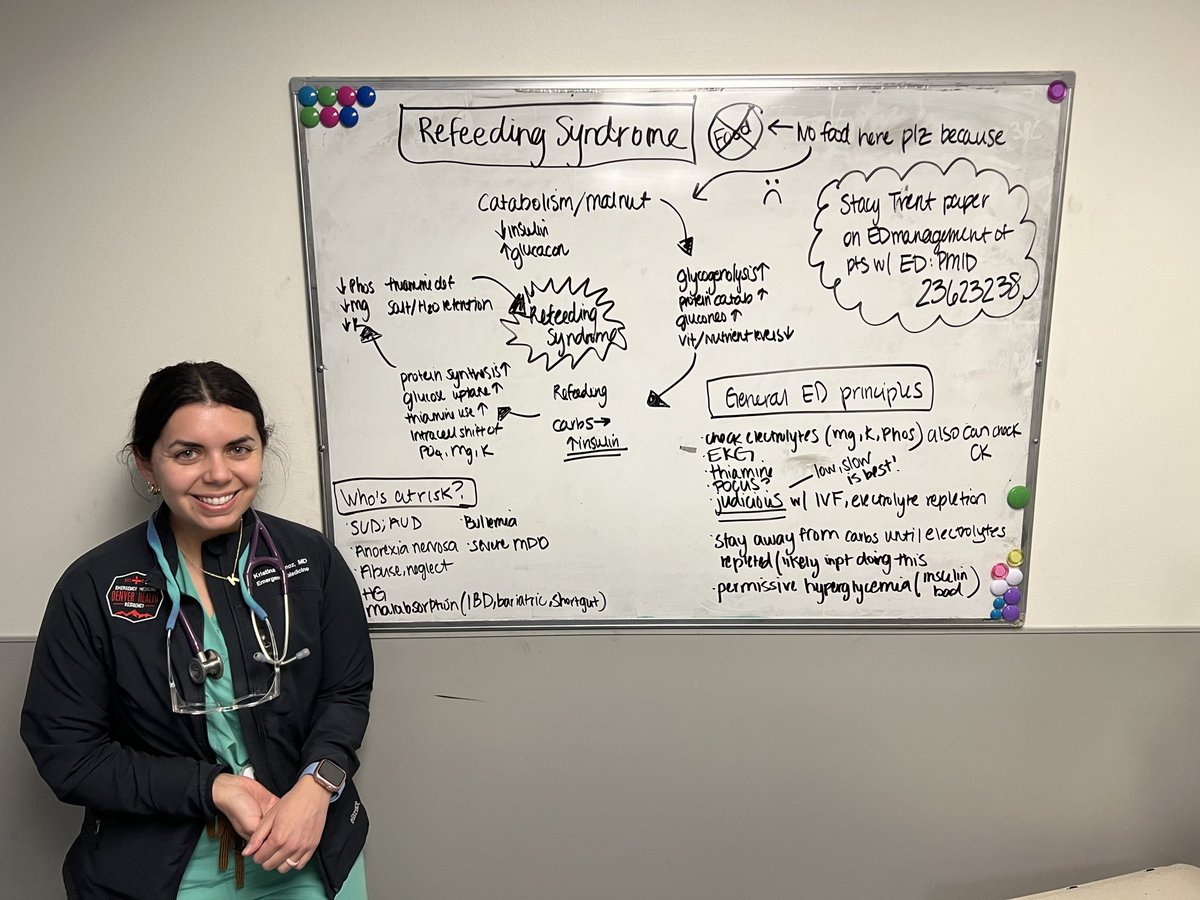 Refeeding Syndrome
Food
← No food here plz because
Catabolism/malnut
↓insulin
↑glucacon
Stacy Trent paper
on ED management of
pts w/ ED: PMID
23623238
glycogenolysis↑
protein catab↑
gluconeo↑
vit/nutrient levels↓
↓Phos thiamine def
↓mg salt/H2O retention
↓K
Refeeding
Syndrome
protein synthesis↑
glucose uptake↑
thiamine use↑
intracell shift of
PO4, Mg, K
Refeeding
carbs→
↑insulin
General ED principles
·check electrolytes (mg, K, Phos) also can check
CK
·EKG
·thiamine
·POCUS?
low, slow
is best!
·judicious w/ IVF, electrolyte repletion
·stay away from carbs until electrolytes
repleted (likely inpt doing this
·permissive hyperglycemia (insulin
bad)
Who's at risk?
·SUD; AUD
·Bulemia
·Anorexia nervosa
·severe MDD
·Abuse, neglect
·HG
·malabsorption (IBD, bariatric, shortgut)
Kristina
MD
Emergency Medicine
EMERGENCY MEDICINE
DENVER HEALTH
RESIDENCY